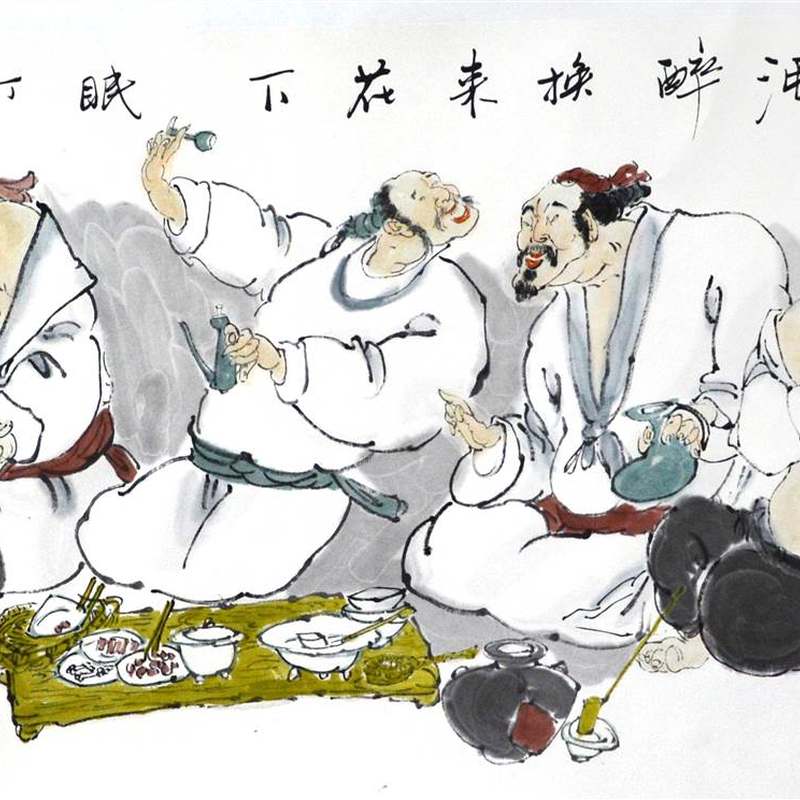 酒醉换来花下眠